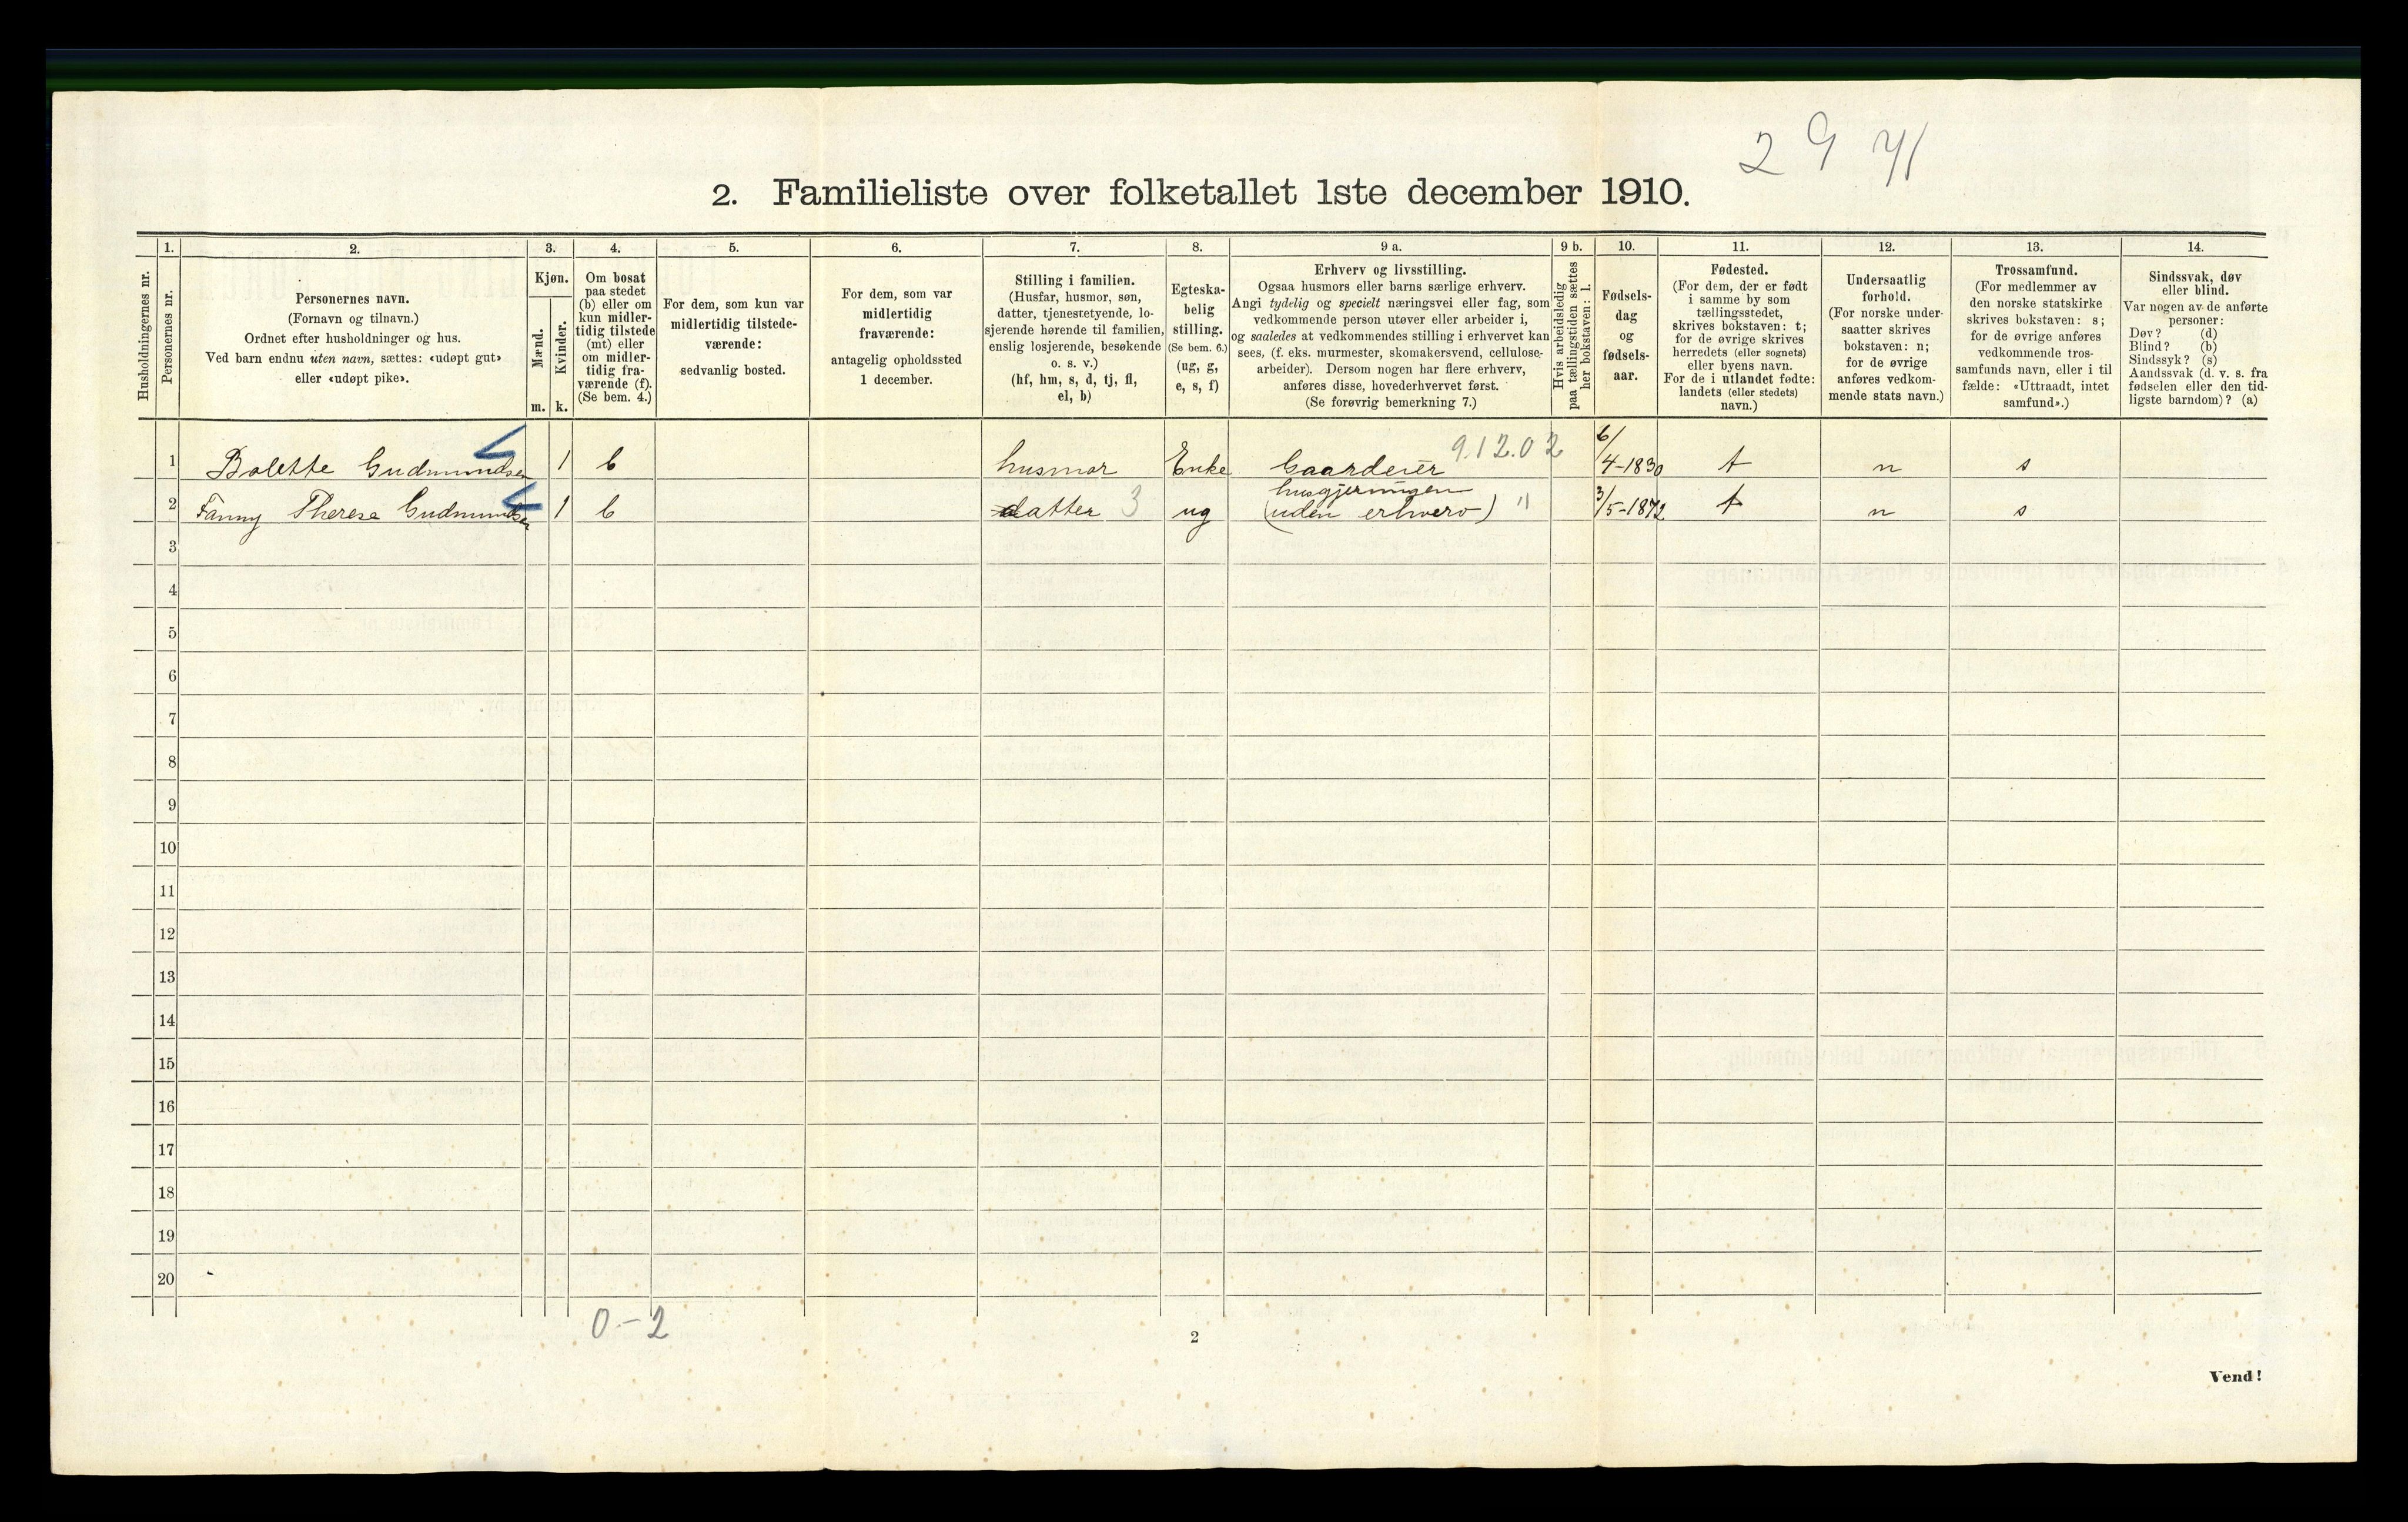 2 9 41
2. Familieliste over folketallet 1ste december 1910.
Husholdningernes nr.
1.
Personernes nr.
2.
Personernes navn.
(Fornavn og tilnavn.)
Ordnet efter husholdninger og hus.
Ved barn endnu uten navn, sættes: «udøpt gut»
eller «udøpt pike».
3.
Kjøn.
Mænd.
Kvinder.
m. k.
4.
Om bosat
paa stedet
(b) eller om
kun midler-
tidig tilstede
(mt) eller
om midler-
tidig fra-
værende (f).
(Se bem. 4.)
5.
For dem, som kun var
midlertidig tilstede-
værende:
sedvanlig bosted.
6.
For dem, som var
midlertidig
fraværende:
antagelig opholdssted
1 december.
7.
Stilling i familien.
(Husfar, husmor, søn,
datter, tjenestetyende, lo-
sjerende hørende til familien,
enslig losjerende, besøkende
o. s. v.)
(hf, hm, s, d, tj, fl,
el, b)
8.
Egteska-
belig
stilling.
(Se bem. 6.)
(ug, g,
e, s, f)
9 a.
Erhverv og livsstilling.
Ogsaa husmors eller barns særlige erhverv.
Angi tydelig og specielt næringsvei eller fag, som
vedkommende person utøver eller arbeider i,
og saaledes at vedkommendes stilling i erhvervet kan
sees, (f. eks. murmester, skomakersvend, cellulose-
arbeider). Dersom nogen har flere erhverv,
anføres disse, hovederhvervet først.
(Se forøvrig bemerkning 7.)
9 b.
Hvis arbeidsledig
paa tællingstiden sættes
her bokstaven: l.
10.
Fødsels-
dag
og
fødsels-
aar.
11.
Fødested.
(For dem, der er født
i samme by som
tællingsstedet,
skrives bokstaven: t;
for de øvrige skrives
herredets (eller sognets)
eller byens navn.
For de i utlandet fødte:
landets (eller stedets)
navn.)
12.
Undersaatlig
forhold.
(For norske under-
saatter skrives
bokstaven: n;
for de øvrige
anføres vedkom-
mende stats navn.)
13.
Trossamfund.
(For medlemmer av
den norske statskirke
skrives bokstaven: s;
for de øvrige anføres
vedkommende tros-
samfunds navn, eller i til
fælde: «Uttraadt, intet
samfund».)
14.
Sindssvak, døv
eller blind.
Var nogen av de anførte
personer:
Døv? (d)
Blind? (b)
Sindssyk? (s)
Aandssvak (d. v. s. fra
fødselen eller den tid-
ligste barndom)? (a)
1 Bolette Gudmundsen 1 b husmor Enke Gaardeier 912.02 6/4-1830 t n s
2 Fanny Therese Gudmundsen 1 b datter 3 ug husgjerningen (uden erhverv) " 3/5-1872 t n s
3
4
5
6
7
8
9
10
11
12
13
14
15
16
17
18
19
20
0-2
2
Vend!